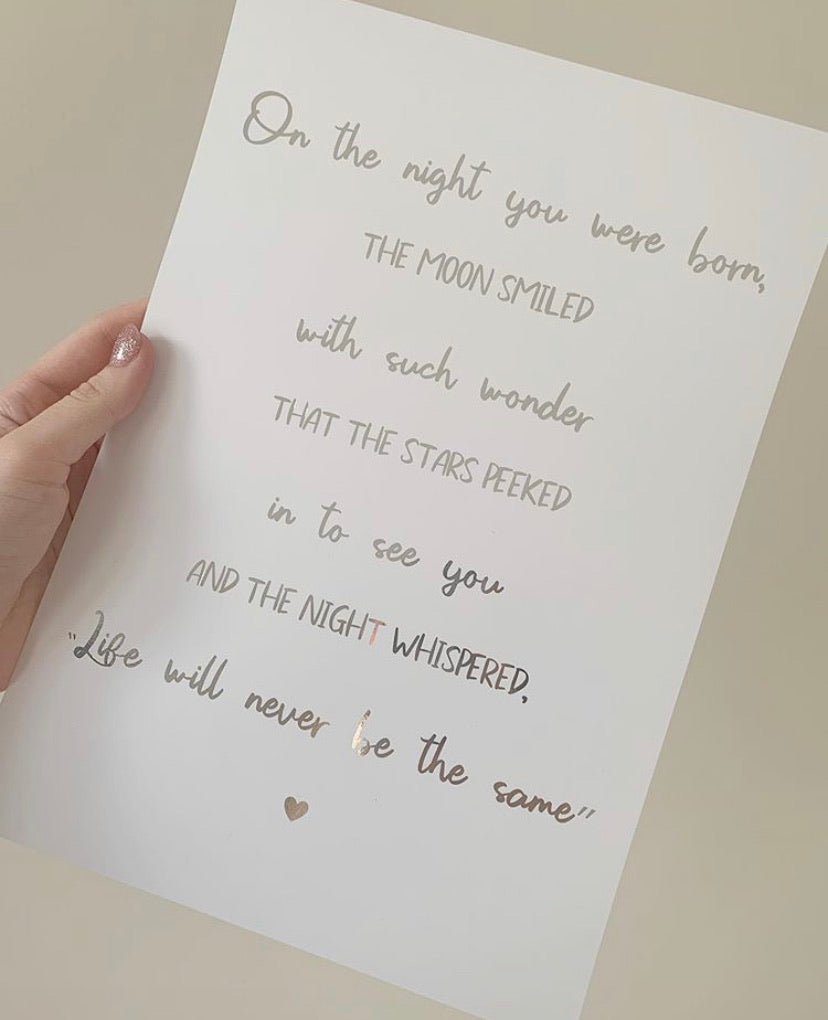 On the night you were born,
THE MOON SMILED
with such wonder
THAT THE STARS PEEKED
in to see you
AND THE NIGHT WHISPERED,
"Life will never be the same"